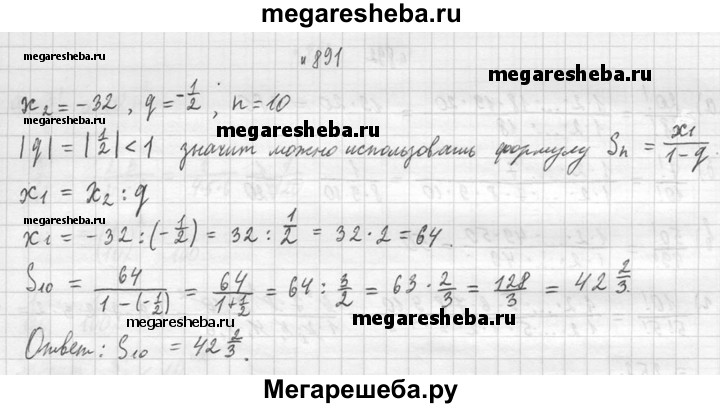 megaresheba.ru
megaresheba.ru
№ 891
megaresheba.ru
x₂ = -32, q = -1/2; n = 10
megaresheba.ru
megaresheba.ru
|q| = |1/2| < 1 значит можно использовать формулу Sn = x₁/(1-q).
x₁ = x₂ : q
megaresheba.ru
x₁ = -32 : (-1/2) = 32 : 1/2 = 32 · 2 = 64.
megaresheba.ru
S₁₀ = 64/(1-(-1/2)) = 64/(1+1/2) = 64 : 3/2 = 63 · 2/3 = 128/3 = 42 2/3.
megaresheba.ru
megaresheba.ru
Ответ: S₁₀ = 42 2/3.
megaresheba.ru
Мегарешеба.ру